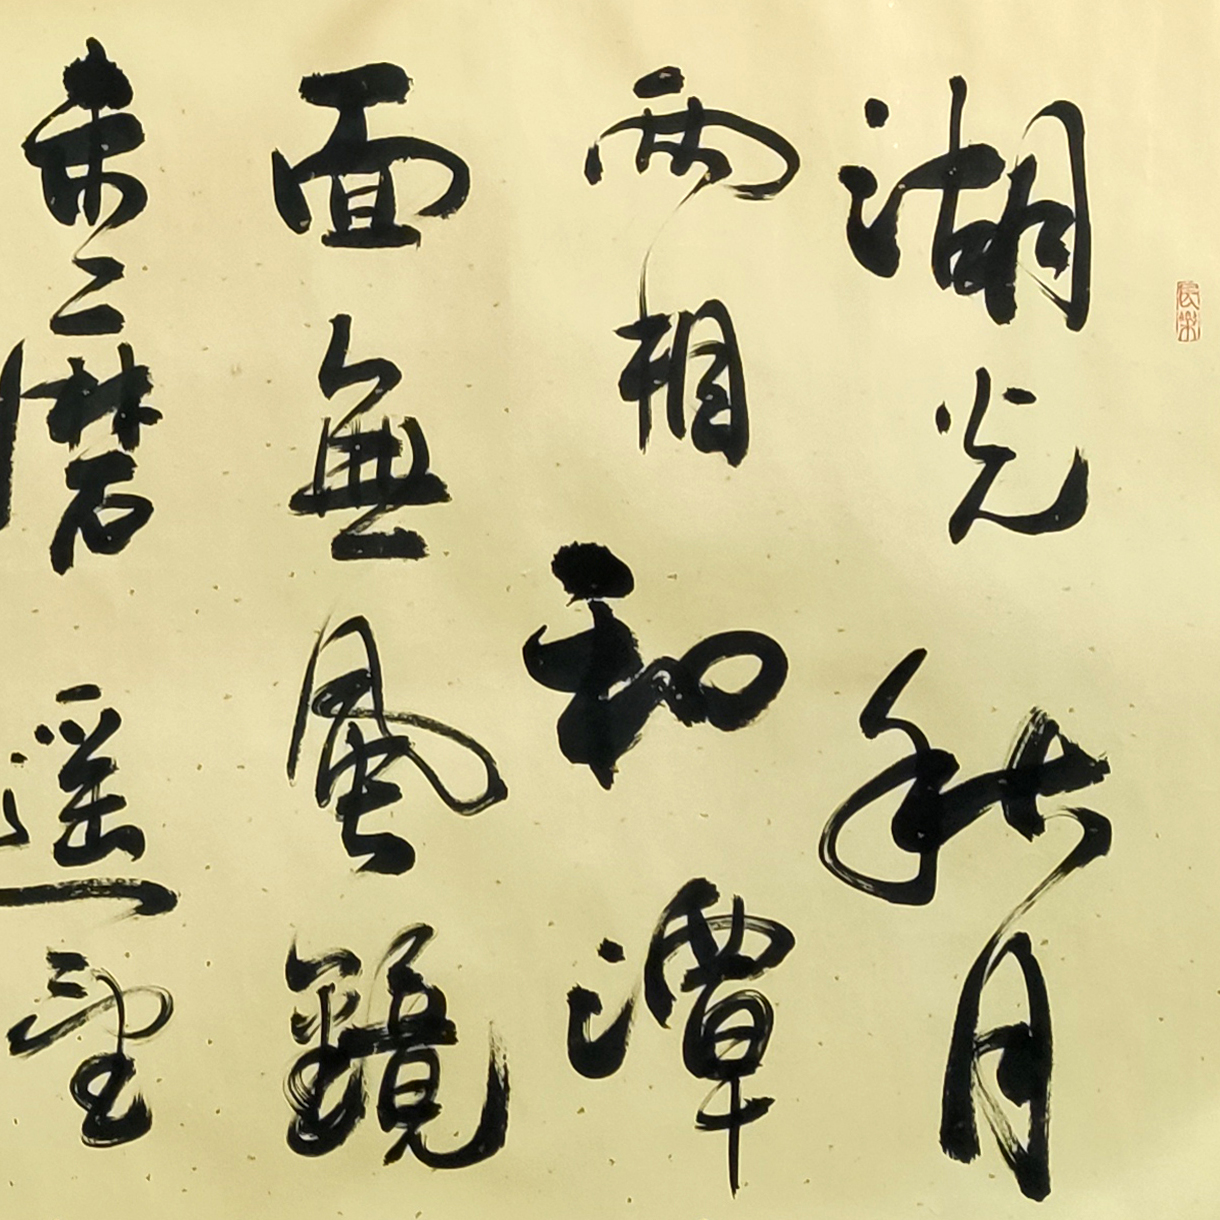 湖光秋月
兩相和潭
面無風鏡
未磨遥望
長樂